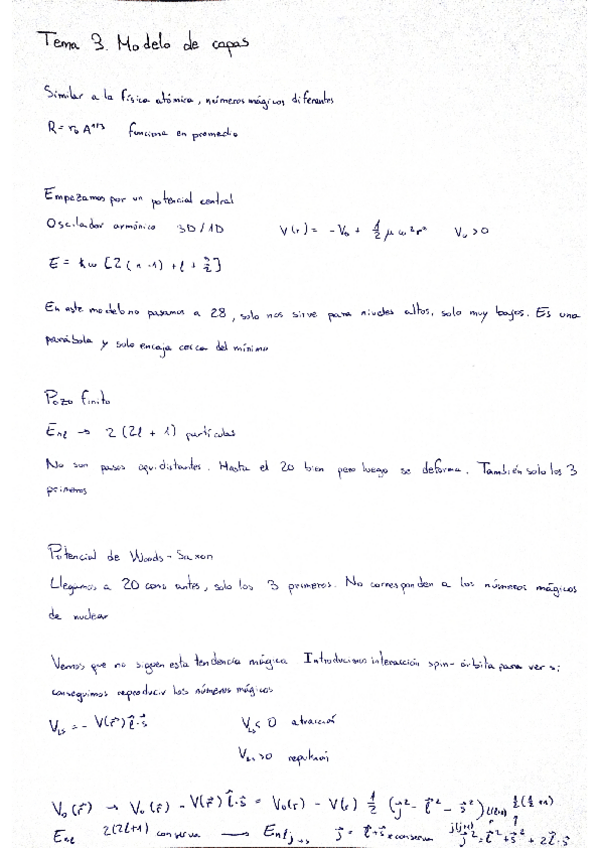 Tema 3. Modelo de capas
Similar a la física atómica, números mágicos diferentes
R = r₀ A^1/3 funciona en promedio
Empezamos por un potencial central
Oscilador armónico 3D/1D V(r) = -V₀ + 1/2 μ ω² r² V₀ > 0
E = ħω [2(n-1) + l + 3/2]
En este modelo no pasamos a 28, solo nos sirve para niveles altos, solo muy bajos. Es una
parábola y solo encaja cerca del mínimo
Pozo finito
E_nl → 2(2l + 1) partículas
No son pasos equidistantes. Hasta el 20 bien pero luego se deforma. También solo los 3
primeros
Potencial de Woods-Saxon
Llegamos a 20 como antes, solo los 3 primeros. No corresponden a los números mágicos
de nuclear
Vemos que no siguen esta tendencia mágica Introducimos interacción spin-órbita para ver si
conseguimos reproducir los números mágicos
V_ls = - V(r⃗) l⃗·s⃗ V_ls < 0 atracción
V_ls > 0 repulsión
V₀(r⃗) → V₀(r) - V(r⃗) l⃗·s⃗ = V₀(r) - V(r) 1/2 (j⃗² - l⃗² - s⃗²) l(l+1) 1/2(1/2+1)
E_nl 2(2l+1) conserva → E_nlj j⃗ = l⃗+s⃗ conserva j(j+1) j⃗² = l⃗² + s⃗² + 2l⃗·s⃗